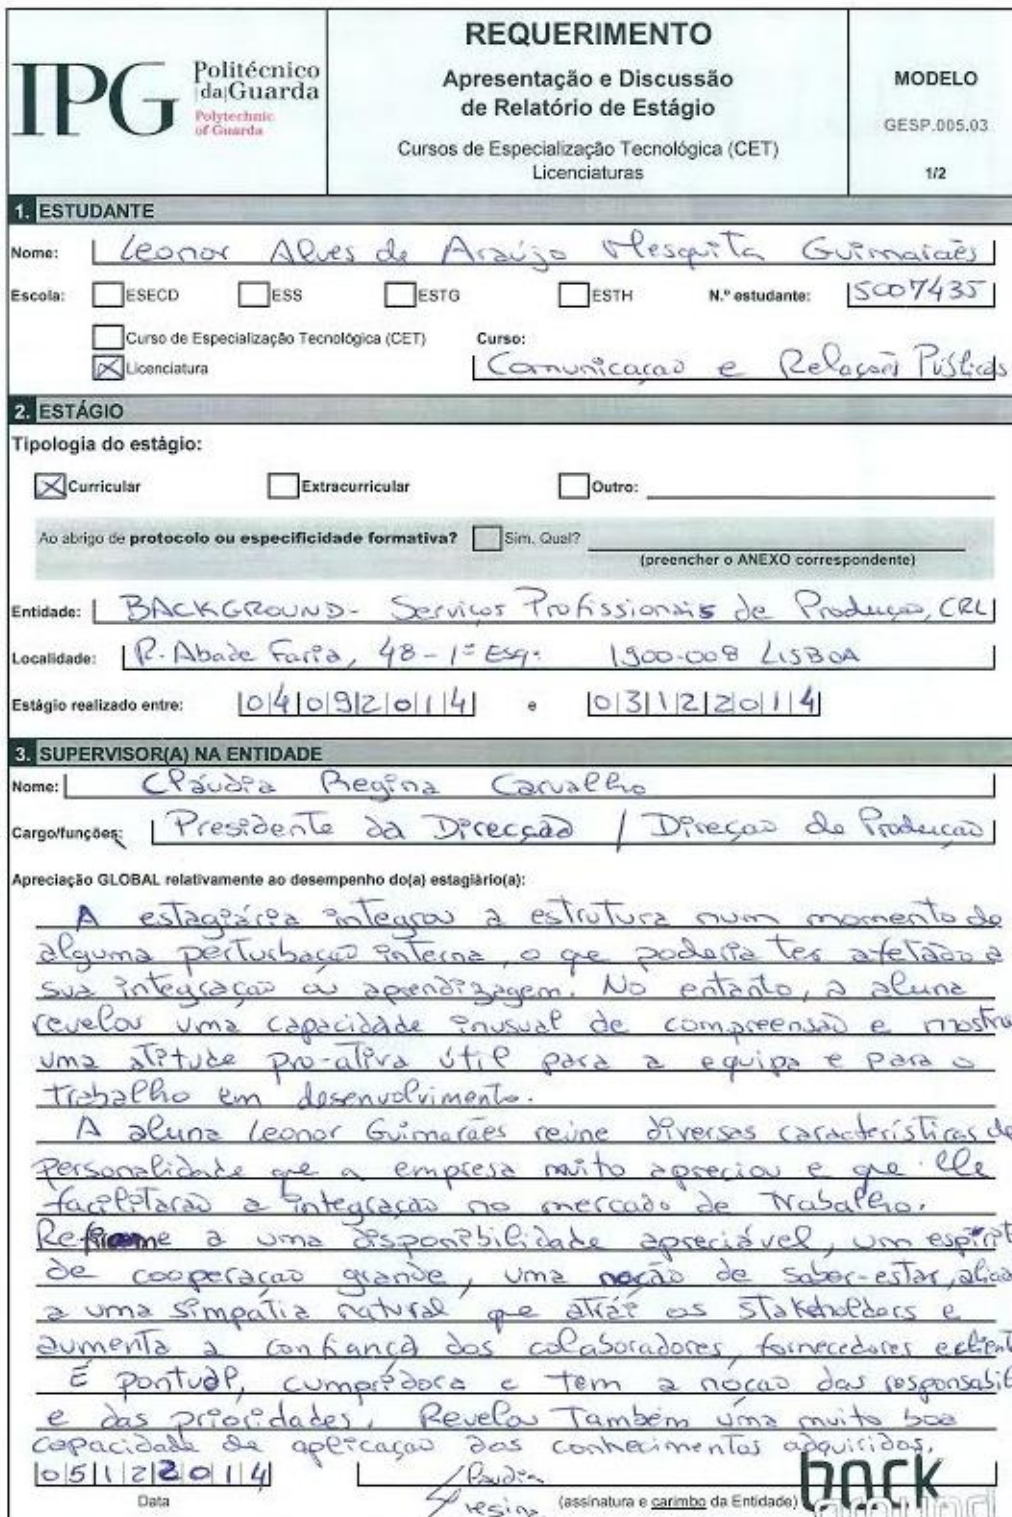 IPG
Politécnico
|da|Guarda
Polytechnic
of Guarda
REQUERIMENTO
Apresentação e Discussão
de Relatório de Estágio
Cursos de Especialização Tecnológica (CET)
Licenciaturas
MODELO
GESP.005.03
1/2
1. ESTUDANTE
Nome: Leonor Alves de Araújo Mesquita Guimarães
Escola: ESECD ESS ESTG ESTH N.º estudante: 5007435
Curso de Especialização Tecnológica (CET) Curso:
Licenciatura Comunicação e Relações Públicas
2. ESTÁGIO
Tipologia do estágio:
Curricular Extracurricular Outro:
Ao abrigo de protocolo ou especificidade formativa? Sim. Qual?
(preencher o ANEXO correspondente)
Entidade: BACKGROUND - Serviços Profissionais de Produção, CRL
Localidade: R. Abade Faria, 48 - 1º Esq. 1900-008 LISBOA
Estágio realizado entre: 04092014 e 03122014
3. SUPERVISOR(A) NA ENTIDADE
Nome: Cláudia Regina Carvalho
Cargo/funções: Presidente da Direcção / Direção de Produção
Apreciação GLOBAL relativamente ao desempenho do(a) estagiário(a):
A estagiária integrou a estrutura num momento de
alguma perturbação interna, o que poderia ter afetado a
sua integração ou aprendizagem. No entanto, a aluna
revelou uma capacidade inusual de compreensão e mostrou
uma atitude pro-ativa útil para a equipa e para o
trabalho em desenvolvimento.
A aluna Leonor Guimarães reúne diversas características de
personalidade que a empresa muito apreciou e que lhe
facilitarão a integração no mercado de trabalho.
a uma disponibilidade apreciável, um espirit
de cooperação grande, uma noção de saber-estar, aliad
a uma simpatia natural que atrái os stakeholders e
aumenta a confiança dos colaboradores, fornecedores e client
É pontual, cumpridora e tem a noção das responsabil
e das prioridades. Revelou também uma muito boa
capacidade de aplicação dos conhecimentos adquiridos.
05122014
Data
Claudia
Regina
(assinatura e carimbo da Entidade)
back
ground